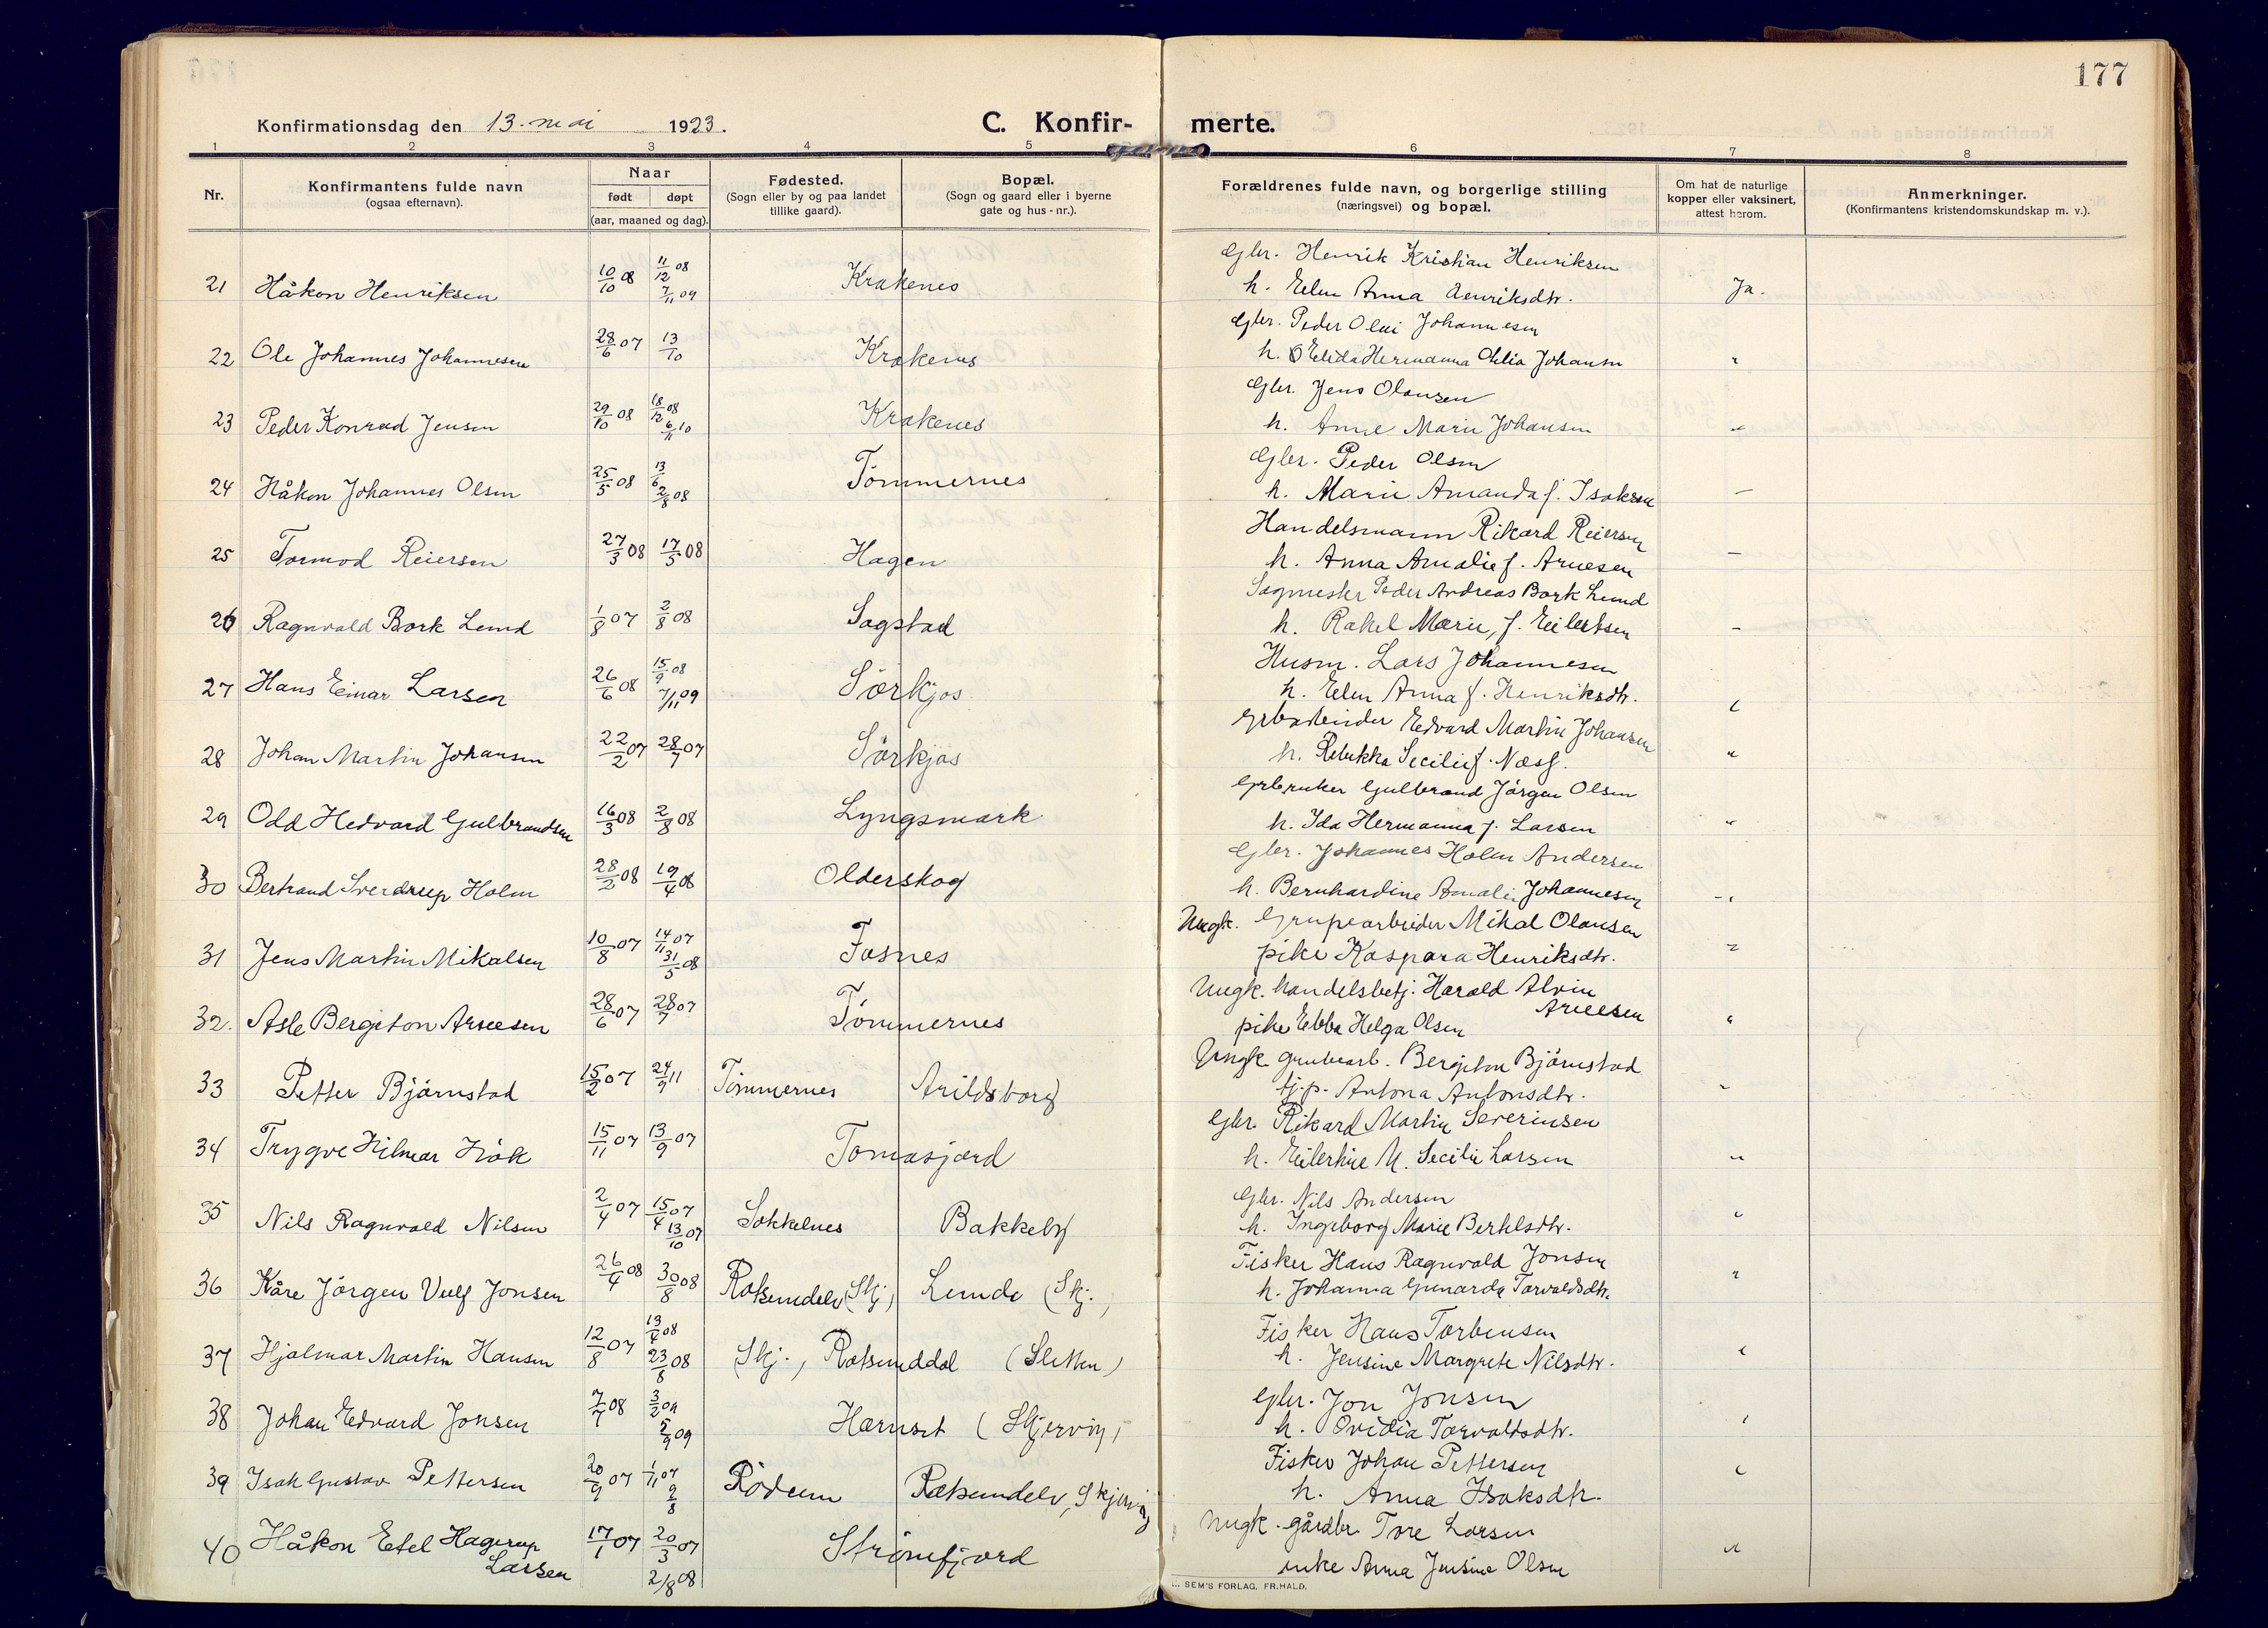 177
Konfirmationsdag den 13. mai 1923.
C. Konfir- merte.
1 2 3 4 5 6 7 8
Nr.
Konfirmantens fulde navn
(ogsaa efternavn).
Naar
født døpt
(aar, maaned og dag).
Fødested.
(Sogn eller by og paa landet
tillike gaard).
Bopæl.
(Sogn og gaard eller i byerne
gate og hus-nr.).
Forældrenes fulde navn, og borgerlige stilling
(næringsvei) og bopæl.
Om hat de naturlige
kopper eller vaksinert,
attest herom.
Anmerkninger.
(Konfirmantens kristendomskundskap m. v.).
Gbr. Henrik Kristian Henriksen
21 Håkon Henriksen 10/10 08 11/12 08 7/11 09 Krakenes h. Elen Anna Henriksdtr. Ja.
Gbr. Peder Olai Johannesen
22 Ole Johannes Johannesen 28/6 07 13/10 Krakenes h. Elida Hermanna Johansn "
Gbr. Jens Olausen
23 Peder Konrad Jensen 29/10 08 18/12 08 6/11 10 Krakenes h. Anne Marie Johansen "
Gbr. Peder Olsen
24 Håkon Johannes Olsen 25/5 08 13/6 2/8 08 Tømmernes h. Marie Amanda f. Isaksen —
Handelsmann Rikard Reiersen
25 Tormod Reiersen 27/3 08 17/5 08 Hagen h. Anna Amalie f. Arnesen —
Sagmester Peder Andreas Bork Lund
26 Ragnvald Bork Lund 1/8 07 2/8 08 Sagstad h. Rakel Marie, f. Eilertsen —
Husm. Lars Johannesen
27 Hans Einar Larsen 26/6 08 15/9 08 7/11 09 Sørkjos h. Elen Anna f. Henriksdtr. "
Edvard Martin Johansen
28 Johan Martin Johansen 22/2 07 28/7 07 Sørkjos h. Rebekka Secilie f. Næss. "
Grbruker Gulbrand Jørgen Olsen
29 Odd Hedvard Gulbrandsen 16/3 08 2/8 08 Lyngsmark h. Ida Hermanna f. Larsen "
Gbr. Johannes Holm Andersen
30 Bertrand Sverdrup Holm 28/2 08 19/4 08 Olderskog h. Bernhardine Amalie Johannesen "
Ungk. Grupearbeider Mikal Olausen
31 Jens Martin Mikalsen 10/8 07 14/11 07 31/5 08 Fosnes pike Kaspara Henriksdtr. "
Ungk. handelsbetj. Harald Alvin
Arnesen
32. Asle Bergiton Arnesen 28/6 07 28/7 07 Tømmernes pike Ebba Helga Olsen "
Ungk. grubearb. Bergiton Bjørnstad
33 Petter Bjørnstad 15/2 07 24/9 11 Tømmernes Arildsborg tj.p. Antona Antonsdtr. "
Gbr. Rikard Martin Severinsen
34 Trygve Hilmar 15/11 07 13/9 07 Tomasjord h. M. Secilie Larsen "
Gbr. Nils Andersen
35 Nils Ragnvald Nilsen 2/4 07 15/4 07 13/10 07 Sokkelnes Bakkeby h. Ingeborg Marie Bertelsdtr. "
Fisker Hans Ragnvald Jonsen
36 Kåre Jørgen Jonsen 26/4 08 30/8 08 Rotsundelv (Skj.) Lunde (Skj.) h. Johanna Gunarda Torvaldsdtr. "
Fisker Hans Torbensen
37 Hjalmar Martin Hansen 12/8 07 13/4 08 23/8 08 (Skj.), Rotsunddal (Sletten) h. Jensine Margrete Nilsdtr. "
Gbr. Jon Jonsen
38 Johan Edvard Jonsen 7/7 08 3/2 09 5/9 09 Havnset (Skjervøy) h. Ovidia Torvaldsdtr. "
Fisker Johan Pettersen
39 Isak Gustav Pettersen 20/9 07 1/11 07 9/8 Rotsundelv, Skjervøy h. Anna Isaksdtr. "
Ungk. gårdbr. Tore Larsen
40 Håkon Etel Hagerup
Larsen 17/1 07 20/3 07 2/8 08 Strømfjord Anna Jensine Olsen "
SEM'S FORLAG, FR.HALD.